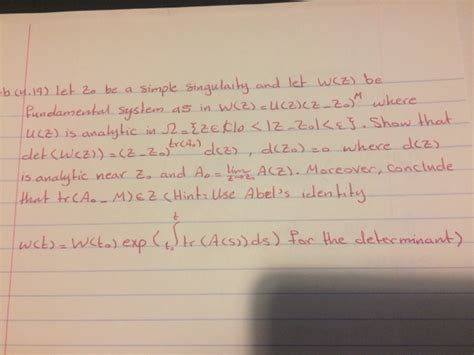 b (4.19) Let Z₀ be a simple singulaity and let W(Z) be
fundamental system as in W(Z) = U(Z)(Z - Z₀)^M where
U(Z) is analytic in Ω = {Z ∈ ℂ | 0 < |Z - Z₀| < ε}. Show that
det(W(Z)) = (Z - Z₀)^tr(A₀) d(Z), d(Z₀) = 0 where d(Z)
is analytic near Z₀ and A₀ = lim Z→Z₀ A(Z). Moreover, conclude
that tr(A₀ - M) ∈ Z (Hint: Use Abel's identity
W(t) = W(t₀) exp (∫t₀^t tr(A(s)) ds) for the determinant)